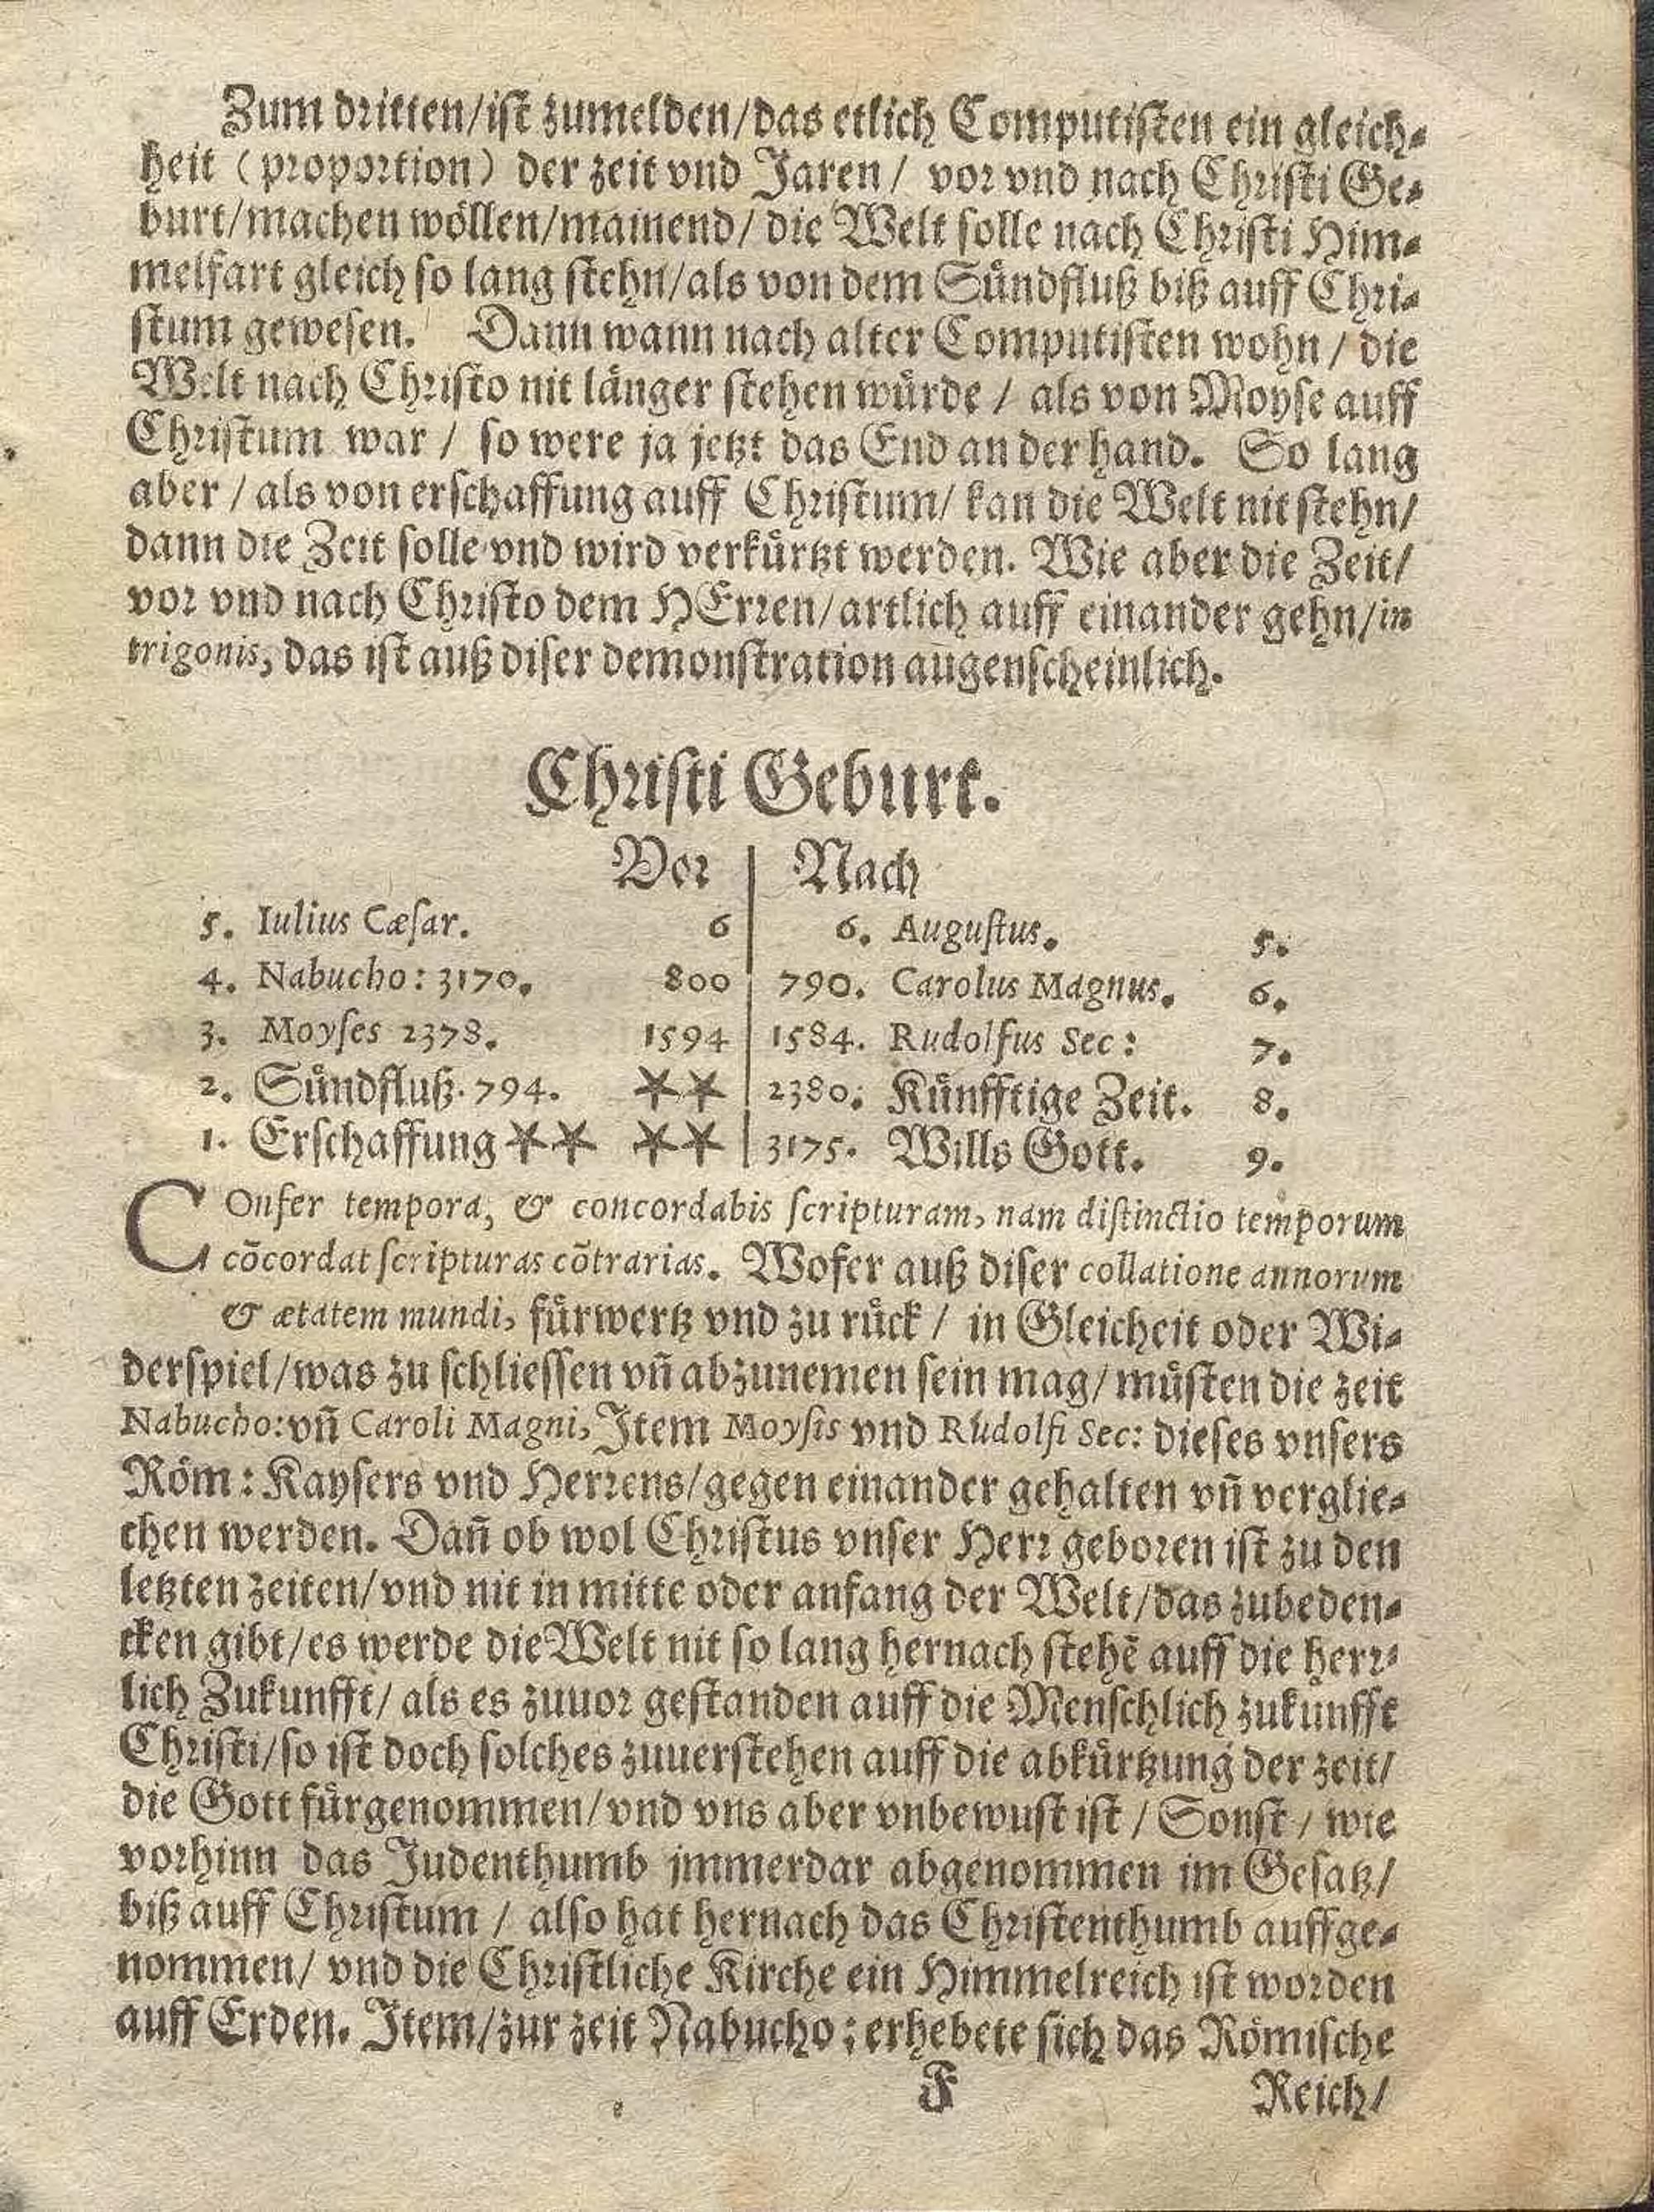 Zum dritten/ist zumelden/das etlich Computisten ein gleich-
heit (proportion) der zeit vnd Jaren/ vor vnd nach Christi Ge-
burt/machen wöllen/mainend/ die Welt solle nach Christi Him-
melfart gleich so lang stehn/als von dem Sündfluß biß auff Chri-
stum gewesen. Dann wann nach alter Computisten wohn/ die
Welt nach Christo nit länger stehen würde/ als von Moyse auff
Christum war/ so were ja jetzt das End an der hand. So lang
aber/als von erschaffung auff Christum/ kan die Welt nit stehn/
dann die Zeit solle vnd wird verkürtzt werden. Wie aber die Zeit/
vor vnd nach Christo dem HErren/artlich auff einander gehn/in
trigonis, das ist auß diser demonstration augenscheinlich.
Christi Geburt.
Vor | Nach
5. Iulius Cæsar. 6 | 6. Augustus. 5.
4. Nabucho: 3170. 800 | 790. Carolus Magnus. 6.
3. Moyses 2378. 1594 | 1584. Rudolfus Sec: 7.
2. Sündfluß. 794. ** | 2380. Künfftige Zeit. 8.
1. Erschaffung ** ** | 3175. Wills Gott. 9.
COnfer tempora, & concordabis scripturam, nam distinctio temporum
cõcordat scripturas cõtrarias. Wofer auß diser collatione annorum
& ætatem mundi, fürwertz vnd zu rück/ in Gleicheit oder Wi-
derspiel/was zu schliessen vñ abzunemen sein mag/müsten die zeit
Nabucho: vñ Caroli Magni, Item Moysis vnd Rudolfi Sec: dieses vnsers
Röm: Kaysers vnd Herrens/gegen einander gehalten vñ verglie-
chen werden. Dañ ob wol Christus vnser Herr geboren ist zu den
letzten zeiten/vnd nit in mitte oder anfang der Welt/das zubeden-
cken gibt/es werde die Welt nit so lang hernach stehẽ auff die herr-
lich Zukunfft/ als es zuuor gestanden auff die Menschlich zukunfft
Christi/so ist doch solches zuuerstehen auff die abkürtzung der zeit/
die Gott fürgenommen/vnd vns aber vnbewust ist/Sonst/ wie
vorhinn das Judenthumb jmmerdar abgenommen im Gesatz/
biß auff Christum/ also hat hernach das Christenthumb auffge-
nommen/ vnd die Christliche Kirche ein Himmelreich ist worden
auff Erden. Item/zur zeit Nabucho: erhebete sich das Römische
F Reich/